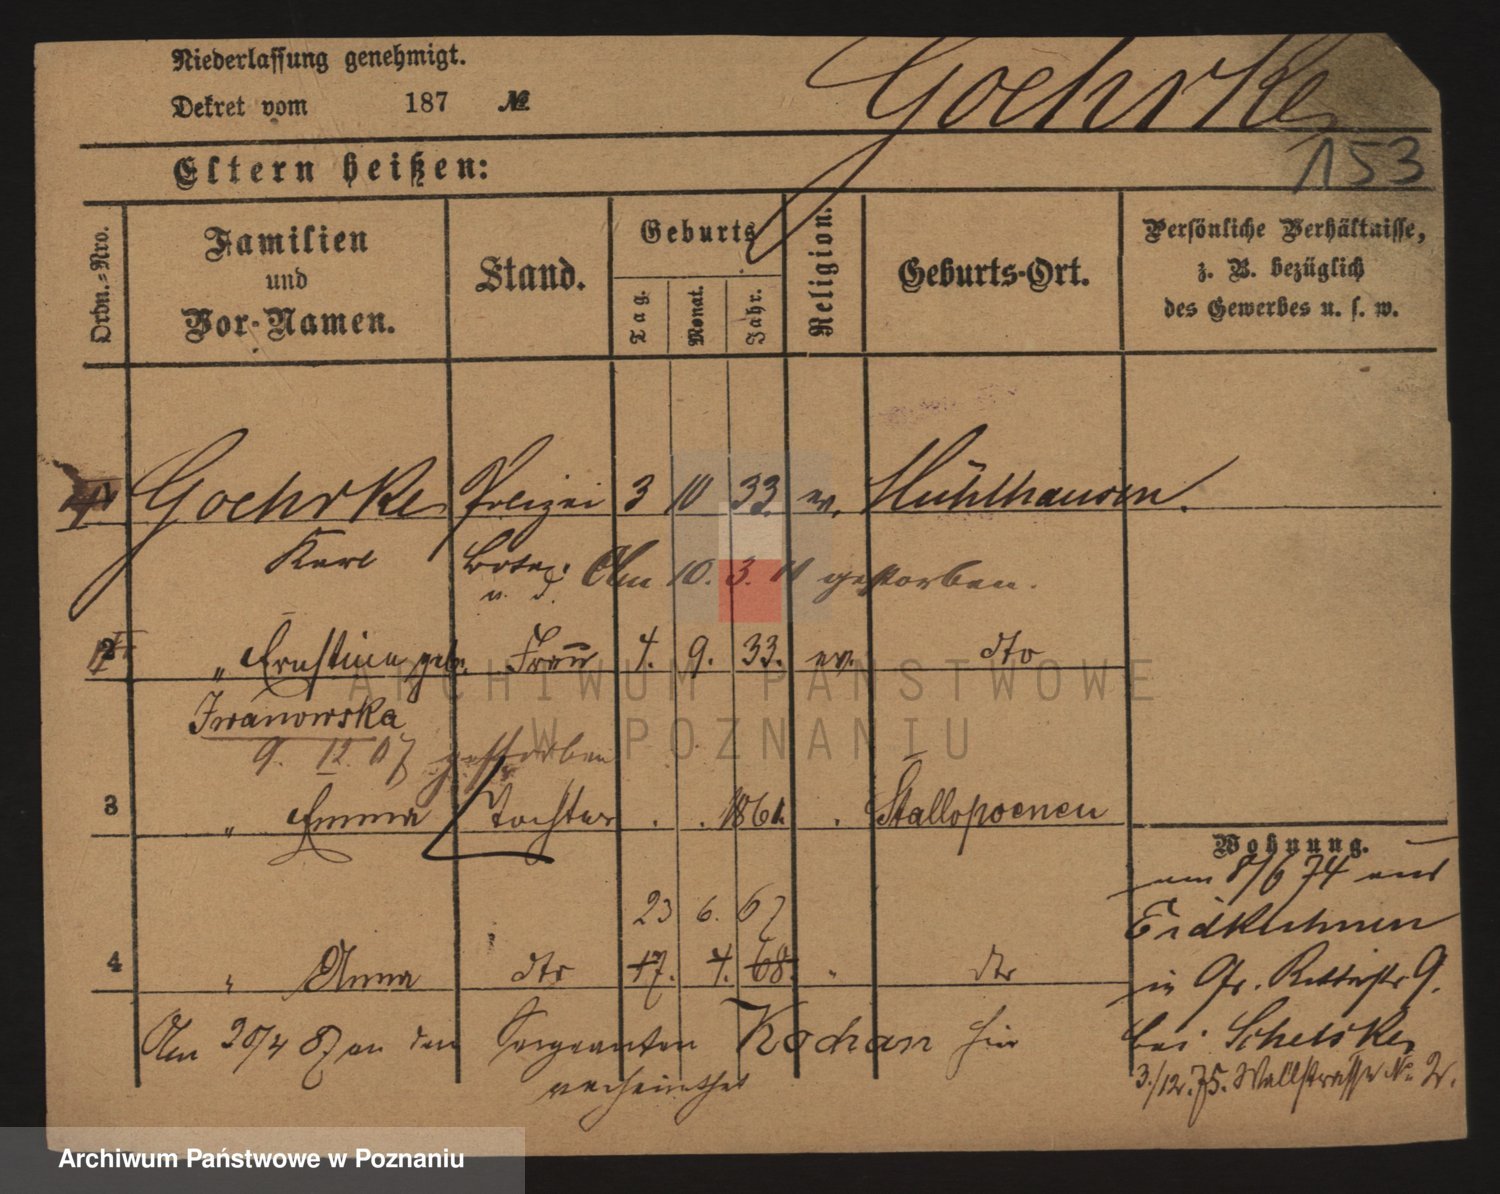 Niederlassung genehmigt.
Goehrke
Dekret vom 187 №
153
Eltern heißen:
Ordn.-Nro.
Familien und Vor-Namen.
Stand.
Geburts
Tag.
Monat.
Jahr.
Religion.
Geburts-Ort.
Persönliche Verhältnisse,
z. B. bezüglich
des Gewerbes u. s. w.
1 Goehrke Polizei 3 10 33. ev. Mühlhausen.
Karl Bote. Am 10. 3. 11 gestorben.
2 " Ernstine geb. Frau 4. 9. 33. ev. dto
Iwanowska
9. 12. 07 gestorben
3 " Emma Tochter . . 1861. . Stallopoenen
Wohnung.
am 8/6 74 aus
23 6. 67
Eidkuhnen
4 " Anna dto 17. 4. 68. " dto
in Gr. Ritterstr 9.
Am 20/4 87 an den Sergeanten Kochan hier
bei Schelske
verheirathet
3./12. 75. Wallstrasse No. 2.
ARCHIWUM PAŃSTWOWE
W POZNANIU
Archiwum Państwowe w Poznaniu